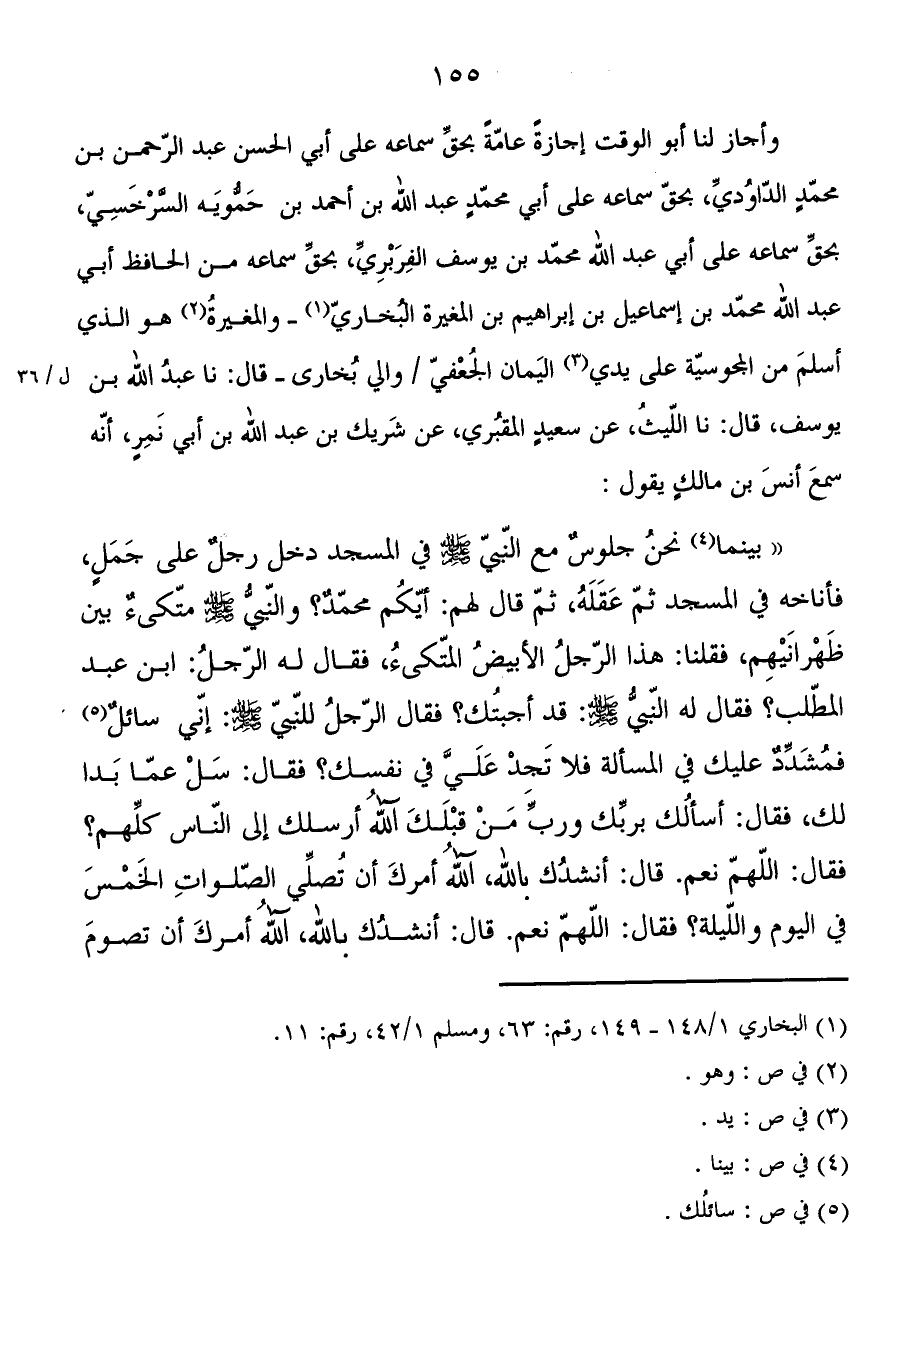 ١٥٥
وأجاز لنا أبو الوقت إجازةً عامّةً بحقِّ سماعه على أبي الحسن عبد الرّحمن بن
محمّدٍ الدّاوُديِّ، بحقّ سماعه على أبي محمّدٍ عبد الله بن أحمد بن حَمُّويَه السَّرْخَسِيّ،
بحقِّ سماعه على أبي عبد الله محمّد بن يوسف الفِرَبْرِيِّ، بحقِّ سماعه من الحافظ أبي
عبد الله محمّد بن إسماعيل بن إبراهيم بن المغيرة البُخاريّ(١) ـ والمغيرةُ(٢) هو الذي
أسلمَ من المجوسيّة على يدي(٣) اليَمان الجُعْفيّ / والي بُخارى ـ قال: نا عبدُ الله بن ل/٣٦
يوسف، قال: نا اللّيثُ، عن سعيدٍ المقبُري، عن شَريك بن عبد الله بن أبي نَمِرٍ، أنّه
سمعَ أنسَ بن مالكٍ يقول :
« بينما(٤) نحنُ جلوسٌ مع النّبيّ ﷺ في المسجد دخل رجلٌ على جَمَلٍ،
فأناخه في المسجد ثمّ عَقَلَهُ، ثمّ قال لهم: أيّكُم محمّدٌ؟ والنّبيُّ ﷺ متّكىءٌ بين
ظَهْرانَيْهِم، فقلنا: هذا الرّجلُ الأبيضُ المتّكىءُ، فقال له الرّجلُ: ابن عبد
المطّلب؟ فقال له النّبيُّ ﷺ: قد أجبتُك؟ فقال الرّجلُ للنّبيّ ﷺ: إنّي سائلٌ(٥)
فمُشَدِّدٌ عليك في المسألة فلا تَجِدْ عَلَيَّ في نفسك؟ فقال: سَلْ عمّا بَدا
لك، فقال: أسألُك بربِّك وربِّ مَنْ قبْلَكَ آللهُ أرسلك إلى النّاس كلِّهم؟
فقال: اللّهمّ نعم. قال: أنشدُك بالله، آللهُ أمركَ أن تُصلِّي الصّلواتِ الخَمْسَ
في اليوم واللّيلة؟ فقال: اللّهمّ نعم. قال: أنشدُك بالله، آللهُ أمركَ أن تصومَ
(١) البخاري ١٤٨/١ ـ ١٤٩، رقم: ٦٣، ومسلم ٤٢/١، رقم: ١١.
(٢) في ص : وهو .
(٣) في ص : يد .
(٤) في ص : بينا .
(٥) في ص : سائلُك .